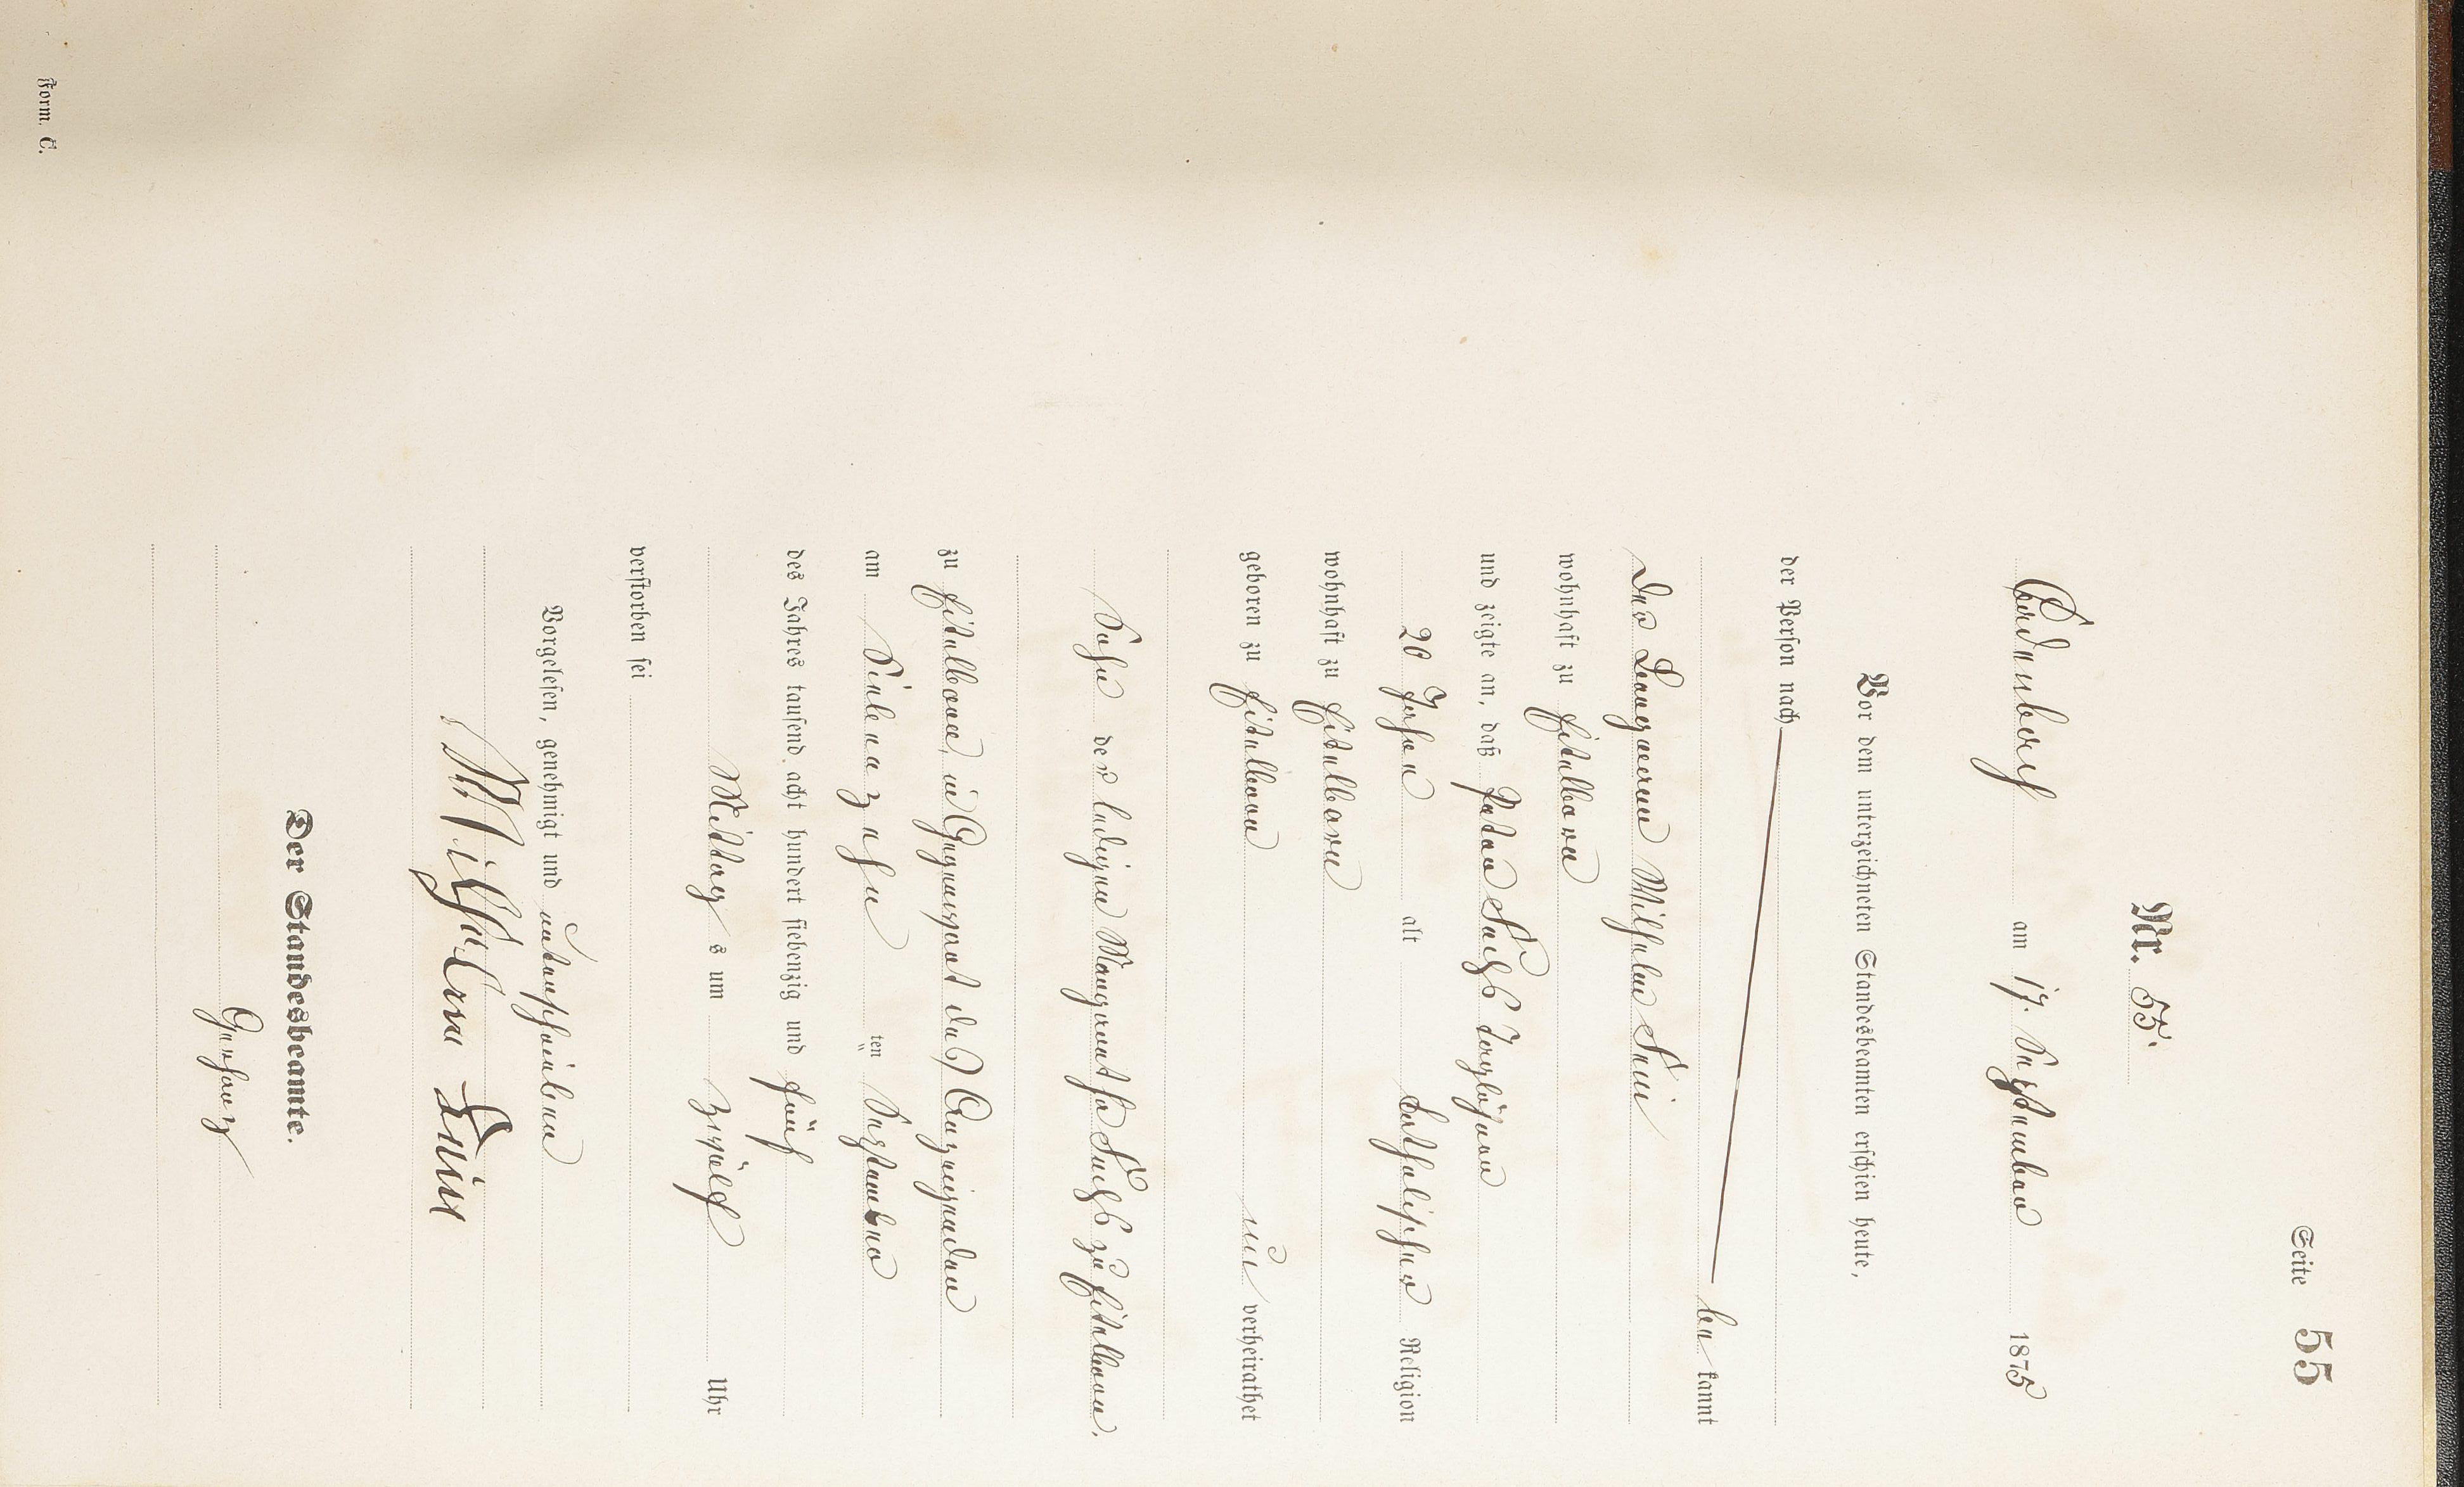 Seite 55
Nr. 55.
Bödenbach am 17. September 1875
Vor dem unterzeichneten Standesbeamten erschien heute,
der Person nach
be kannt
der Bergmann Wilhelm
wohnhaft zu Hitelborn
und zeigte an, daß Peter Tagelöhner
20 Jahre alt katholischer Religion
wohnhaft zu Hitelborn
geboren zu Hitelborn un verheirathet
Sohn der ledigen Margaretha zu Hitelborn.
zu Hitelborn, in Gegenwart des Anzeigenden
am Siebenzehn ten September
des Jahres tausend acht hundert siebenzig und fünf
Mittag s um zwölf Uhr
verstorben sei
Vorgelesen, genehmigt und unterschrieben
Wilhelm
Der Standesbeamte.
Gerharz
Form. C.